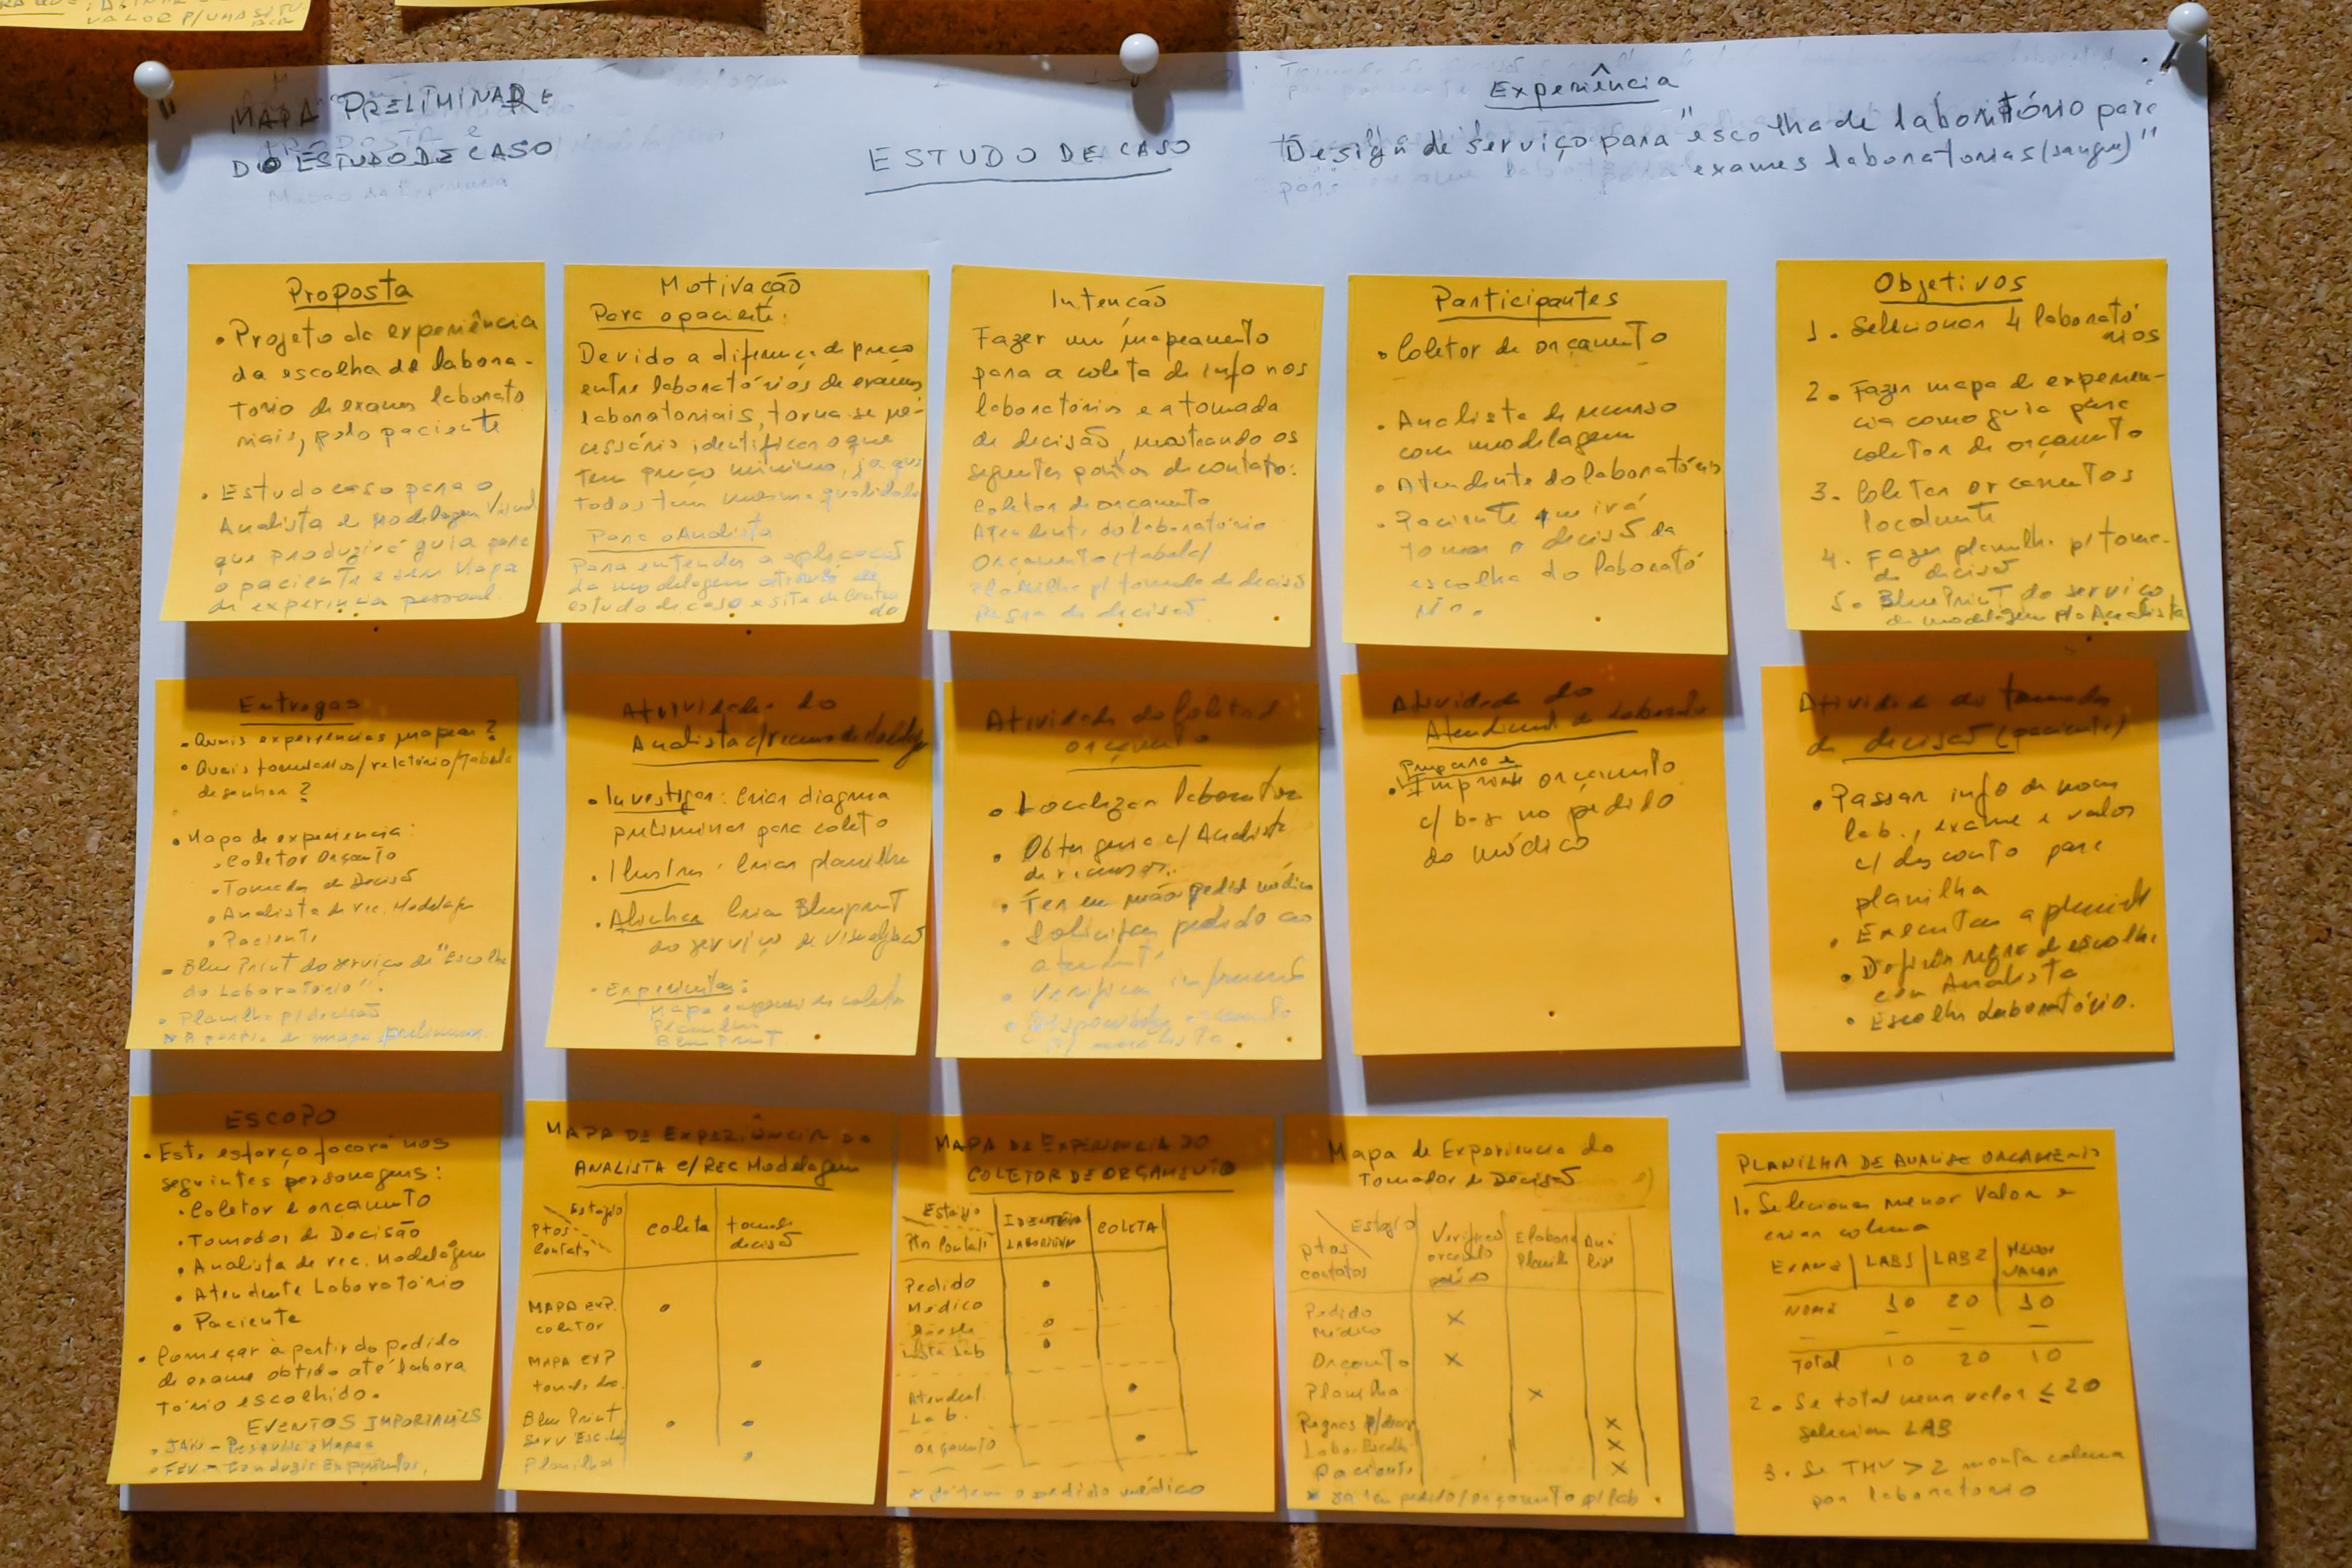 VALOR P/UMA
"MAPA" PRELIMINAR E
DO ESTUDO DE CASO
ESTUDO DE CASO
Experiência
"Design de serviço para "escolha de laboratório para
exames laboratoriais (sangue)"
Proposta
• Projeto da experiência
da escolha de labora-
torio de exames laborato
riais, pelo paciente
• Estudo caso para o
Analista de Modelagem Visual
que produzirá guia para
o paciente e sem Mapa
de experiencia pessoal.
Motivação
Para o paciente:
Devido a diferença de preço
entre laboratórios de exames
laboratoriais, torna se ne-
cessário identificar o que
tem preço mínimo, já que
todos tem mesma qualidade
Para o Analista
Para entender a aplicação
da modelagem através de
estudo de caso e site de conteú
do
Intenção
Fazer um mapeamento
para a coleta de info nos
laboratórios e a tomada
de decisão, mostrando os
seguintes pontos de contato:
Coletor de orçamento
Atendente do laboratório
Orçamento (tabela)
Planilha p/ tomada de decisão
Regra de decisão.
Participantes
• Coletor de orçamento
• Analista de recurso
com modelagem
• Atendente do laboratório
• Paciente que irá
tomar a decisão da
escolha do laborató
rio.
Objetivos
1. Selecionar 4 laborató
rios
2. Fazer mapa de experien-
cia como guia para
coletor de orçamento
3. Coletar orçamentos
localmente
4. Fazer planilha p/ toma-
da decisão
5. BluePrint do serviço
de modelagem p/o Analista
Entregas
• Quais experiencias mapear?
• Quais formularios/relatório/Tabela
desenhar?
• Mapa de experiencia:
• Coletor Orçamento
• Tomador de Decisão
• Analista de rec. Modelagem
• Paciente
• BluePrint do serviço de "Escolha
do Laboratório".
• Planilha p/decisão
* A partir do mapa preliminar.
Atividades do
Analista c/recurso de Modelagem
• Investigar: Criar diagrama
preliminar para coleta
• Ilustrar: Criar planilha
• Alinhar Criar Blueprint
do serviço de visualização
• Experimentar:
Mapa experiencia coleta
Planilha
BluePrint
Atividade do Coletor de
orçamento
• Localizar laboratório
• Obter guia c/ Analista
de recursos.
• Ter em mão pedido médico
• Solicitar pedido ao
atendente
• Verificar
• Disponibilizar orçamento
p/ analista.
Atividade do
Atendente de laboratório
Prepara e
• Imprime orçamento
c/ base no pedido
do médico
Atividade do tomador
de decisão (paciente)
• Passar info de nome
lab., exame e valor
c/ desconto para
planilha
• Executar a planilha
• Definir regra de escolha
com Analista
• Escolher Laboratório.
ESCOPO
• Este esforço focará nos
seguintes personagens:
• Coletor e orçamento
• Tomador de Decisão
• Analista de rec. Modelagem
• Atendente Laboratório
• Paciente
• Começar à partir do pedido
de exame obtido até labora
tório escolhido.
EVENTOS IMPORTANTES
• JAN - Pesquisa e Mapas
• FEV - Conduzir Experimentos.
MAPA DE EXPERIÊNCIA DO
ANALISTA C/REC Modelagem
Estágio
Ptos Contato
coleta
tomada decisão
MAPA EXP. coletor
MAPA EXP
BluePrint
Serv Esc. Lab
Planilha
MAPA DE EXPERIENCIA DO
COLETOR DE ORÇAMENTO
Estágio
Ptos Contato
LABORATÓRIO
COLETA
Pedido
Médico
Lista Lab
Atendent.
Lab.
Orçamento
* já tem o pedido médico
Mapa de Experiencia do
Tomador de Decisão
Estágio
ptos
contatos
Verificar
orçamento
pedido
Elabora
Planilha
Aná
lise
Pedido
Médico
X
Orçamento X
Planilha X
Regras p/decis X
X
Paciente X
* Já tem pedido/orçamento p/lab.
PLANILHA DE ANALISE ORÇAMENTO
1. Selecionar menor valor e
criar coluna
EXAME | LAB1 | LAB2 | MENOR VALOR
NOME 10 20 10
Total 10 20 10
2. Se total menor valor ≤ 20
selecion LAB
3. Se TMV > 2 monta coluna
por laboratorio